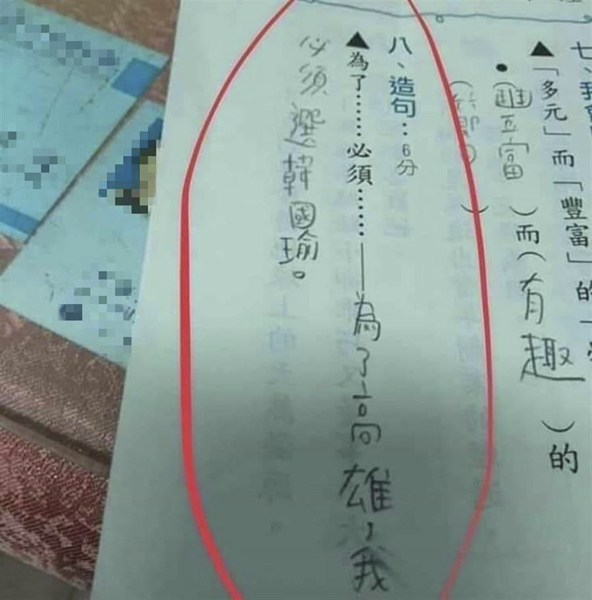 七、我
▲「多元」而「豐富」的
●(豐富)而(有趣)的
(節目)
八、造句：6分
▲為了……必須……——為了高雄，我
必須選韓國瑜。